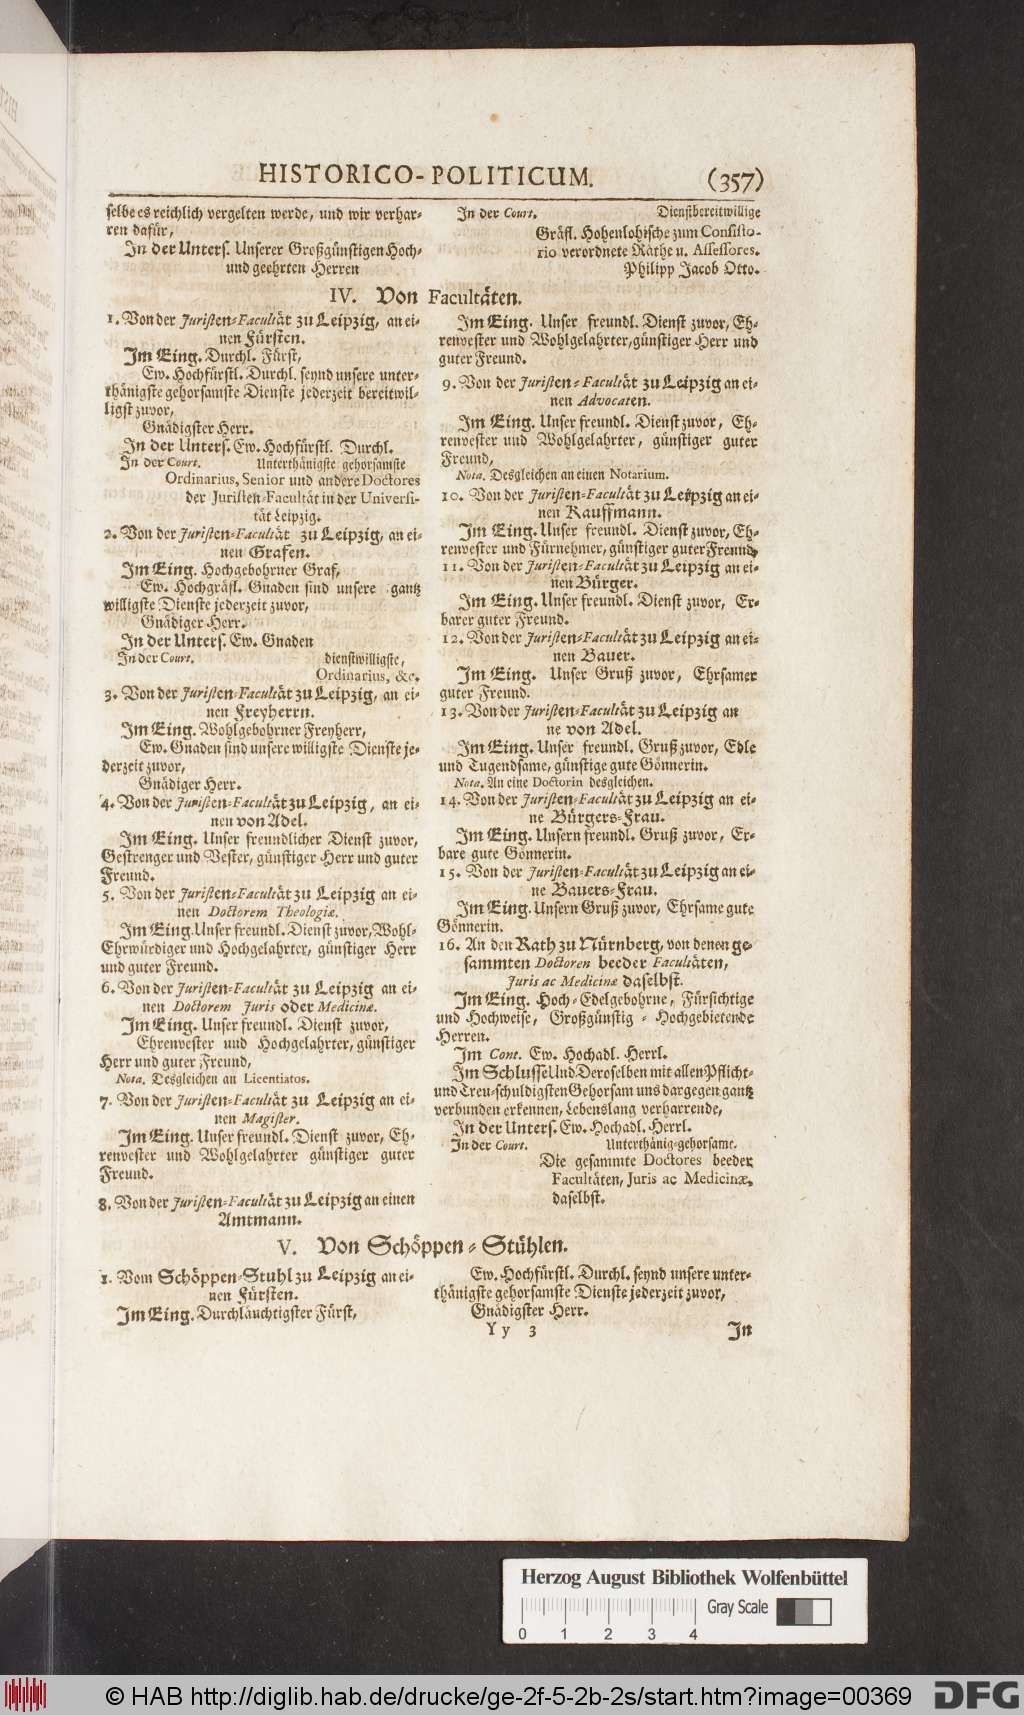 HISTORICO-POLITICUM. (357)
selbe es reichlich vergelten werde, und wir verhar-
ren dafür,
In der Unters. Unserer Großgünstigen Hoch-
und geehrten Herren
In der Court. Dienstbereitwillige
Gräfl. Hohenlohische zum Consisto-
rio verordnete Räthe u. Assessores.
Philipp Jacob Otto.
IV. Von Facultäten.
1. Von der Juristen-Facultät zu Leipzig, an ei-
nen Fürsten.
Im Eing. Durchl. Fürst,
Ew. Hochfürstl. Durchl. seynd unsere unter-
thänigste gehorsamste Dienste jederzeit bereitwil-
ligst zuvor,
Gnädigster Herr.
In der Unters. Ew. Hochfürstl. Durchl.
In der Court. Unterthänigste gehorsamste
Ordinarius, Senior und andere Doctores
der Juristen-Facultät in der Universi-
tät Leipzig.
2. Von der Juristen-Facultät zu Leipzig, an ei-
nen Grafen.
Im Eing. Hochgebohrner Graf,
Ew. Hochgräfl. Gnaden sind unsere gantz
willigste Dienste jederzeit zuvor,
Gnädiger Herr.
In der Unters. Ew. Gnaden
In der Court. dienstwilligste,
Ordinarius, &c.
3. Von der Juristen-Facultät zu Leipzig, an ei-
nen Freyherrn.
Im Eing. Wohlgebohrner Freyherr,
Ew. Gnaden sind unsere willigste Dienste je-
derzeit zuvor,
Gnädiger Herr.
4. Von der Juristen-Facultät zu Leipzig, an ei-
nen von Adel.
Im Eing. Unser freundlicher Dienst zuvor,
Gestrenger und Vester, günstiger Herr und guter
Freund.
5. Von der Juristen-Facultät zu Leipzig an ei-
nen Doctorem Theologiæ.
Im Eing. Unser freundl. Dienst zuvor, Wohl-
Ehrwürdiger und Hochgelahrter, günstiger Herr
und guter Freund.
6. Von der Juristen-Facultät zu Leipzig an ei-
nen Doctorem Juris oder Medicinæ.
Im Eing. Unser freundl. Dienst zuvor,
Ehrenvester und Hochgelahrter, günstiger
Herr und guter Freund,
Nota. Desgleichen an Licentiatos.
7. Von der Juristen-Facultät zu Leipzig an ei-
nen Magister.
Im Eing. Unser freundl. Dienst zuvor, Eh-
renvester und Wohlgelahrter günstiger guter
Freund.
8. Von der Juristen-Facultät zu Leipzig an einen
Amtmann.
Im Eing. Unser freundl. Dienst zuvor, Eh-
renvester und Wohlgelahrter, günstiger Herr und
guter Freund.
9. Von der Juristen-Facultät zu Leipzig an ei-
nen Advocaten.
Im Eing. Unser freundl. Dienst zuvor, Eh-
renvester und Wohlgelahrter, günstiger guter
Freund,
Nota. Desgleichen an einen Notarium.
10. Von der Juristen-Facultät zu Leipzig an ei-
nen Kauffmann.
Im Eing. Unser freundl. Dienst zuvor, Eh-
renvester und Fürnehmer, günstiger guter Freund.
11. Von der Juristen-Facultät zu Leipzig an ei-
nen Bürger.
Im Eing. Unser freundl. Dienst zuvor, Er-
barer guter Freund.
12. Von der Juristen-Facultät zu Leipzig an ei-
nen Bauer.
Im Eing. Unser Gruß zuvor, Ehrsamer
guter Freund.
13. Von der Juristen-Facultät zu Leipzig an
ne von Adel.
Im Eing. Unser freundl. Gruß zuvor, Edle
und Tugendsame, günstige gute Gönnerin.
Nota. An eine Doctorin desgleichen.
14. Von der Juristen-Facultät zu Leipzig an ei-
ne Bürgers-Frau.
Im Eing. Unsern freundl. Gruß zuvor, Er-
bare gute Gönnerin.
15. Von der Juristen-Facultät zu Leipzig an ei-
ne Bauers-Frau.
Im Eing. Unsern Gruß zuvor, Ehrsame gute
Gönnerin.
16. An den Rath zu Nürnberg, von denen ge-
sammten Doctoren beeder Facultäten,
Juris ac Medicinæ daselbst.
Im Eing. Hoch-Edelgebohrne, Fürsichtige
und Hochweise, Großgünstig-Hochgebietende
Herren.
Im Cont. Ew. Hochadl. Herrl.
Im Schlusse Und Deroselben mit allen Pflicht-
und Treu-schuldigsten Gehorsam uns dargegen gantz
verbunden erkennen, Lebenslang verharrende,
In der Unters. Ew. Hochadl. Herrl.
In der Court. Unterthänig-gehorsame.
Die gesammte Doctores beeder
Facultäten, Juris ac Medicinæ,
daselbst.
V. Von Schöppen-Stühlen.
1. Vom Schöppen-Stuhl zu Leipzig an ei-
nen Fürsten.
Im Eing. Durchläuchtigster Fürst,
Ew. Hochfürstl. Durchl. seynd unsere unter-
thänigste gehorsamste Dienste jederzeit zuvor,
Gnädigster Herr.
Yy 3 In
Herzog August Bibliothek Wolfenbüttel
Gray Scale
0 1 2 3 4
© HAB http://diglib.hab.de/drucke/ge-2f-5-2b-2s/start.htm?image=00369 DFG